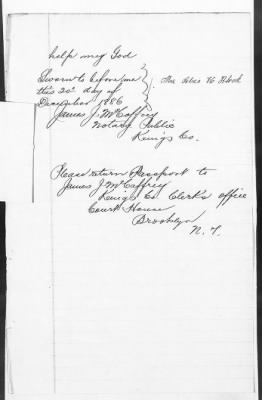 help me God
Sworn to before me
this 20th day of
December 1886
James J. McCaffrey
Notary Public
Kings Co.
Please return Passport to
James J. McCaffrey
Kings Co Clerk's office
Court House
Brooklyn
N. Y.